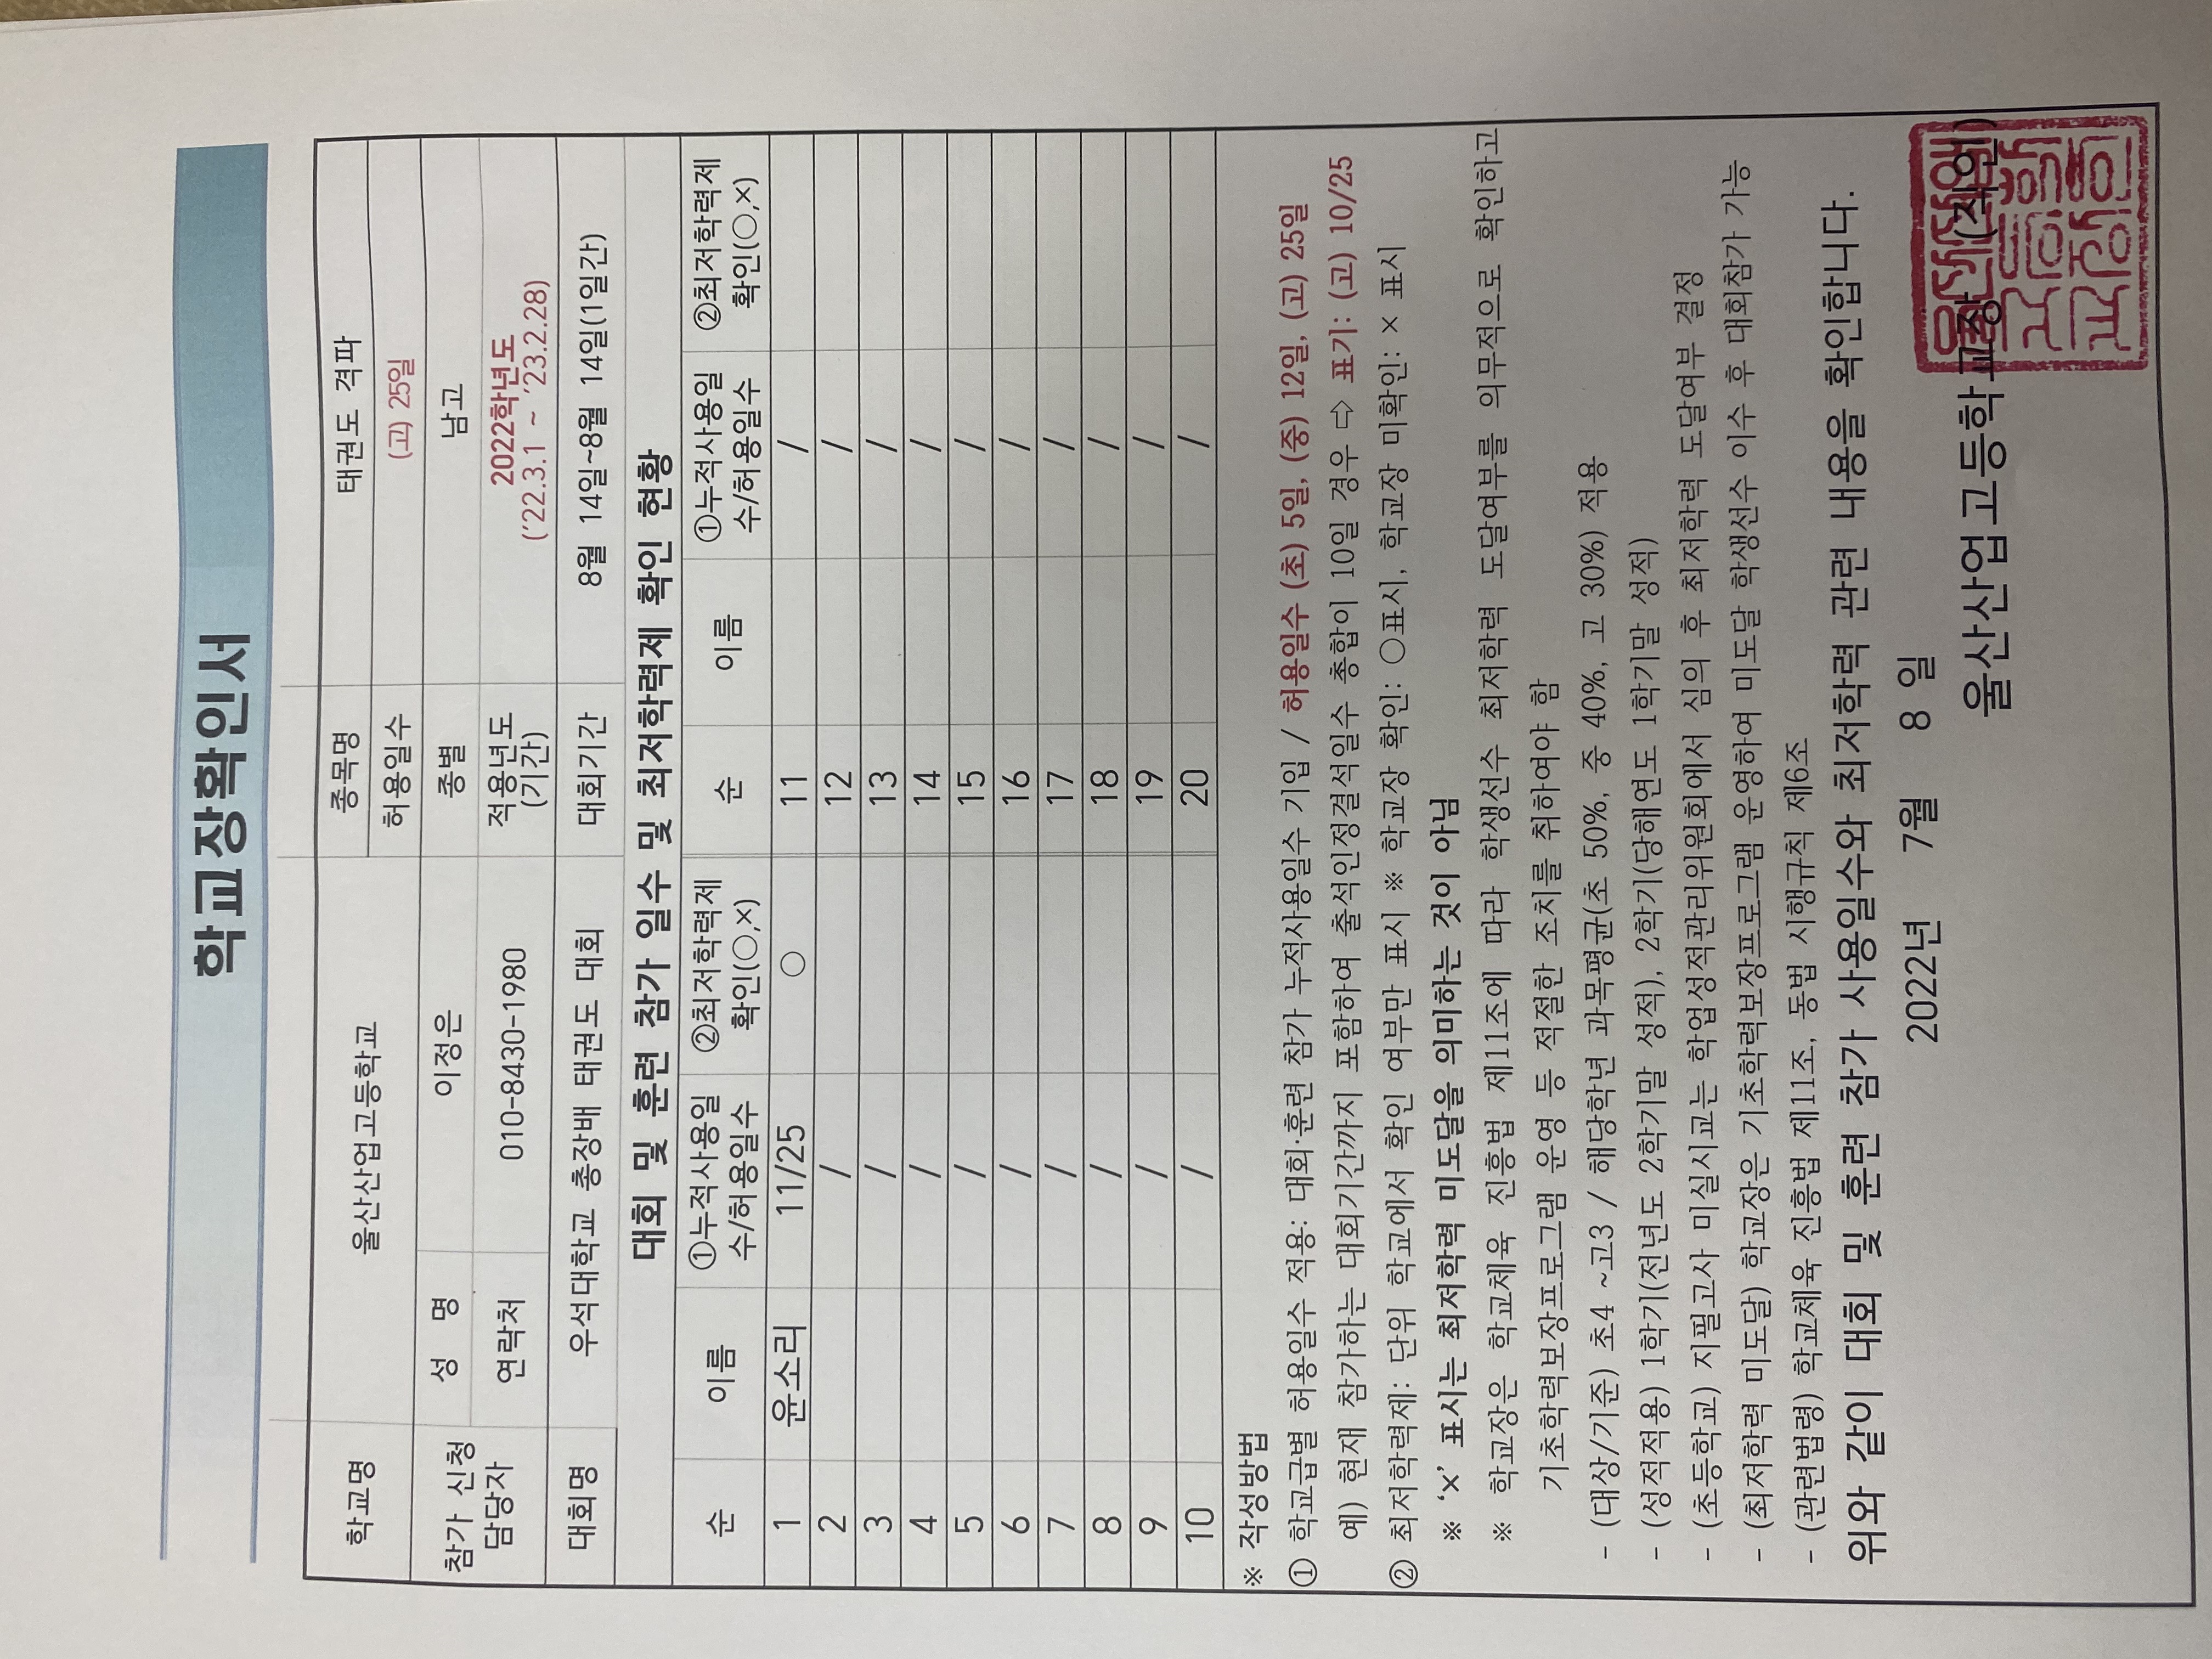 학교장확인서
학교명 울산산업고등학교 종목명 태권도 격파
허용일수 (고) 25일
참가 신청 담당자 성 명 이정은 종별 남고
연락처 010-8430-1980 적용년도 (기간) 2022학년도 ('22.3.1 ~ '23.2.28)
대회명 우석대학교 총장배 태권도 대회 대회기간 8월 14일~8월 14일(1일간)
대회 및 훈련 참가 일수 및 최저학력제 확인 현황
순 이름 ①누적사용일수/허용일수 ②최저학력제 확인(○,×) 순 이름 ①누적사용일수/허용일수 ②최저학력제 확인(○,×)
1 윤소리 11/25 ○ 11 /
2 / 12 /
3 / 13 /
4 / 14 /
5 / 15 /
6 / 16 /
7 / 17 /
8 / 18 /
9 / 19 /
10 / 20 /
※ 작성방법
① 학교급별 허용일수 적용: 대회·훈련 참가 누적사용일수 기입 / 허용일수 (초) 5일, (중) 12일, (고) 25일
예) 현재 참가하는 대회기간까지 포함하여 출석인정결석일수 총합이 10일 경우 ⇨ 표기: (고) 10/25
② 최저학력제: 단위 학교에서 확인 여부만 표시 ※ 학교장 확인: ○표시, 학교장 미확인: × 표시
※ '×' 표시는 최저학력 미도달을 의미하는 것이 아님
※ 학교장은 학교체육 진흥법 제11조에 따라 학생선수 최저학력 도달여부를 의무적으로 확인하고
기초학력보장프로그램 운영 등 적절한 조치를 취하여야 함
- (대상/기준) 초4 ~고3 / 해당학년 과목평균(초 50%, 중 40%, 고 30%) 적용
- (성적적용) 1학기(전년도 2학기말 성적), 2학기(당해연도 1학기말 성적)
- (초등학교) 지필고사 미실시교는 학업성적관리위원회에서 심의 후 최저학력 도달여부 결정
- (최저학력 미도달) 학교장은 기초학력보장프로그램 운영하여 미도달 학생선수 이수 후 대회참가 가능
- (관련법령) 학교체육 진흥법 제11조, 동법 시행규칙 제6조
위와 같이 대회 및 훈련 참가 사용일수와 최저학력 관련 내용을 확인합니다.
2022년 7월 8 일
울산산업고등학교장 (직인)